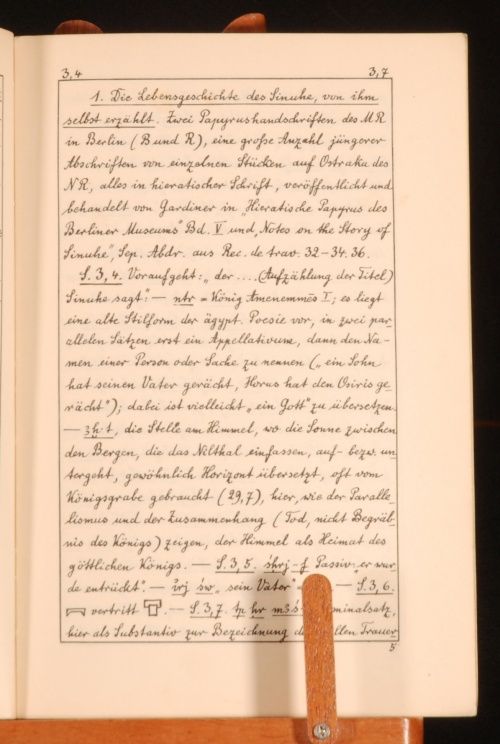 3,4 3,7
1. Die Lebensgeschichte des Sinuhe, von ihm
selbst erzählt. Zwei Papyrushandschriften des MR
in Berlin (B und R), eine große Anzahl jüngerer
Abschriften von einzelnen Stücken auf Ostraka des
NR, alles in hieratischer Schrift, veröffentlicht und
behandelt von Gardiner in „Hieratische Papyrus des
Berliner Museums" Bd. V und „Notes on the Story of
Sinuhe", Sep. Abdr. aus Rec. de trav. 32–34. 36.
S. 3, 4. Voraufgeht: „der .... (Aufzählung der Titel)
Sinuhe sagt": — ntr = König Amenemmēs I; es liegt
eine alte Stilform der ägypt. Poesie vor, in zwei par
allelen Sätzen erst ein Appellativum, dann den Na-
men einer Person oder Sache zu nennen („ein Sohn
hat seinen Vater gerächt, Horus hat den Osiris ge
rächt"); dabei ist vielleicht „ein Gott" zu übersetzen.
— ꜣḫ·t, die Stelle am Himmel, wo die Sonne zwischen
den Bergen, die das Nilthal einfassen, auf- bezw. un
tergeht, gewöhnlich Horizont übersetzt, oft vom
Königsgrabe gebraucht (29,7), hier, wie der Paralle-
lismus und der Zusammenhang (Tod, nicht Begräb-
nis des Königs) zeigen, der Himmel als Heimat des
göttlichen Königs. — S. 3, 5. śḥrj-f Passiv „er wur
de entrückt". — św „sein Vater" — S. 3, 6.
vertritt — S. 3, 7. tp ḥr minalsatz,
hier als Substantiv zur Bezeichnung llen Trauer
5